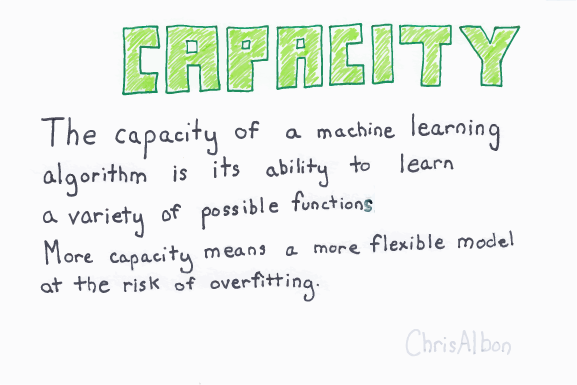 CAPACITY
The capacity of a machine learning
algorithm is its ability to learn
a variety of possible functions
More capacity means a more flexible model
at the risk of overfitting.
ChrisAlbon